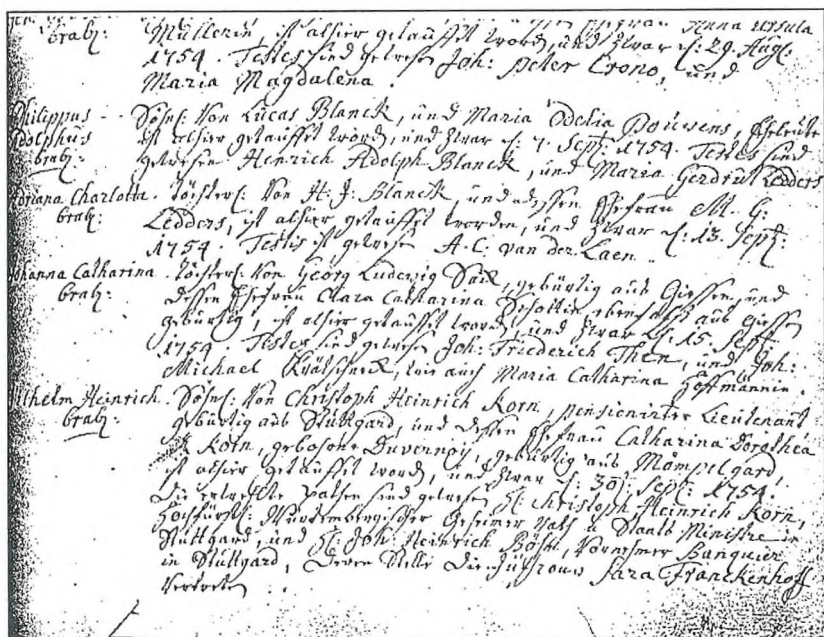 dessen Ehefrau Anna Ursula
bratz: Müllerin, ist alhier getauffet word, und zwar d: 29. Aug:
1754. Testes sind gewesen Joh: Peter Crono, und
Maria Magdalena.
Philippus - Söhnl: Von Lucas Blanck, und Maria Odelia Pouwens, Eheleute
Adolphus ist alhier getauffet word, und zwar d: 7. Sept: 1754. Testes sind
bratz: gewesen Henrich Adolph Blanck, und Maria Gerdrut Ledders
Adriana Charlotta. Töchterl: Von H: J: Blanck, und dessen Ehefrau M: G:
bratz: Ledders, ist alhier getauffet worden, und zwar d: 13. Sept:
1754. Testis ist gewesen A. C: van der Laen.
Johanna Catharina. Töchterl: Von Georg Ludewig gebürtig aus Giessen, und
bratz: dessen Ehefrau Clara Catharina Schottin, aus Giessen
gebürtig, ist alhier getauffet word, und zwar d: 15. Sept:
1754 Testes sind gewesen Joh: Friederich Then, und Joh:
Michael wie auch Maria Catharina Hoffmännin.
Wilhelm Heinrich. Söhnl: Von Christoph Heinrich Korn, pensioninter Lieutenant
bratz: gebürtig aus Stuttgard, und dessen Ehefrau Catharina Dorothea
Korn, gebohrne Duvernoy, gebürtig aus Mömpelgard
ist alhier getauffet word, und zwar d: 30. Sept: 1754.
Die erwehlte Pathen sind gewesen H: Christoph Heinrich Korn,
Hochfürstl: Würtembergischer Geheimer Rath u Staats Ministre in
Stuttgard, und H: Joh: Heinrich Vornehmer Banquier
in Stuttgard, deren Stelle die Jüfrouw Sara Franckenhoff
vertreten